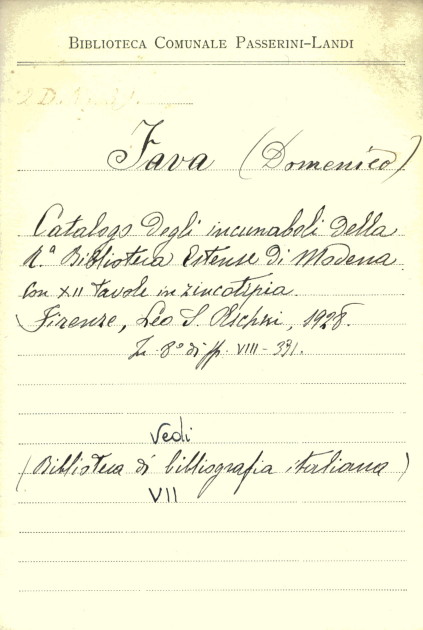 BIBLIOTECA COMUNALE PASSERINI-LANDI
Fava (Domenico)
Catalogo degli incunaboli della
R.ª Biblioteca Estense di Modena
Con XII tavole in zincotipia.
Firenze, Leo S. Olschki, 1928.
In 8º di pp. VIII-331.
Vedi
(Biblioteca di bibliografia italiana)
VII